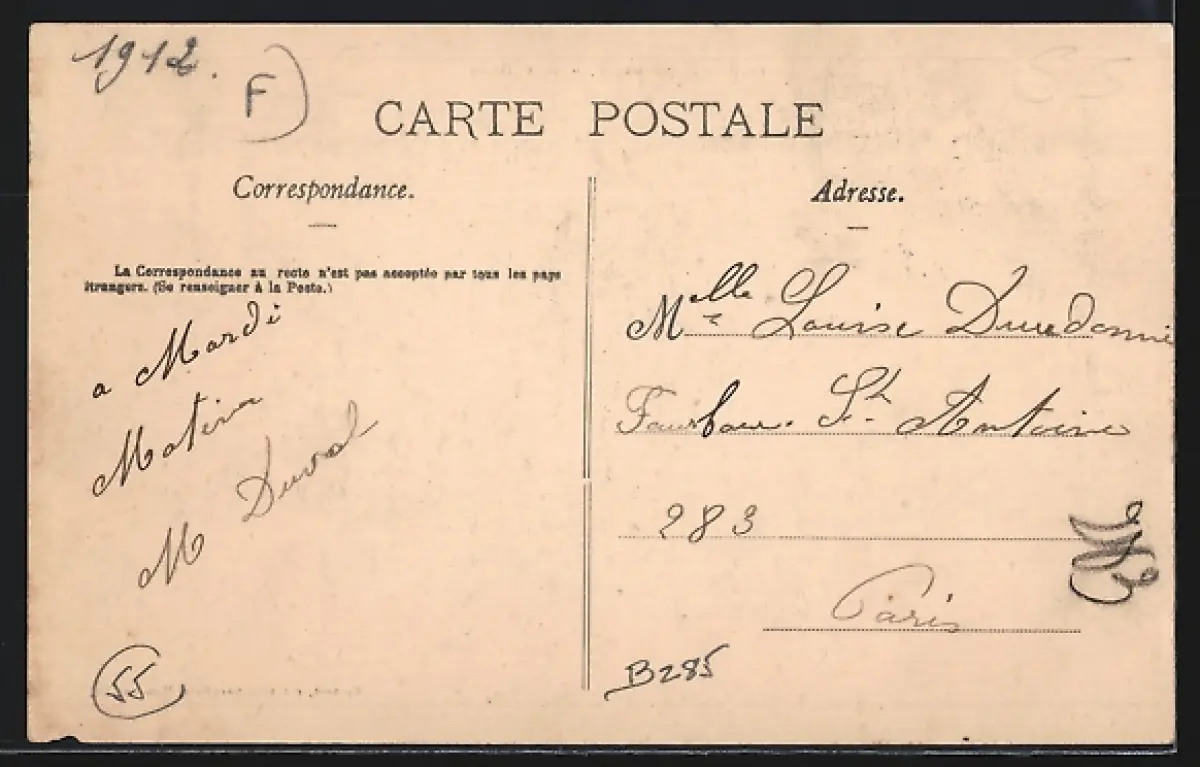 1912.
F
CARTE POSTALE
Correspondance.
La Correspondance au recto n'est pas acceptée par tous les pays
étrangers. (Se renseigner à la Poste.)
a Mardi
Matin
M Duval
55
Adresse.
Melle Louise
Faurbour. St. Antoine
283
Paris
B285